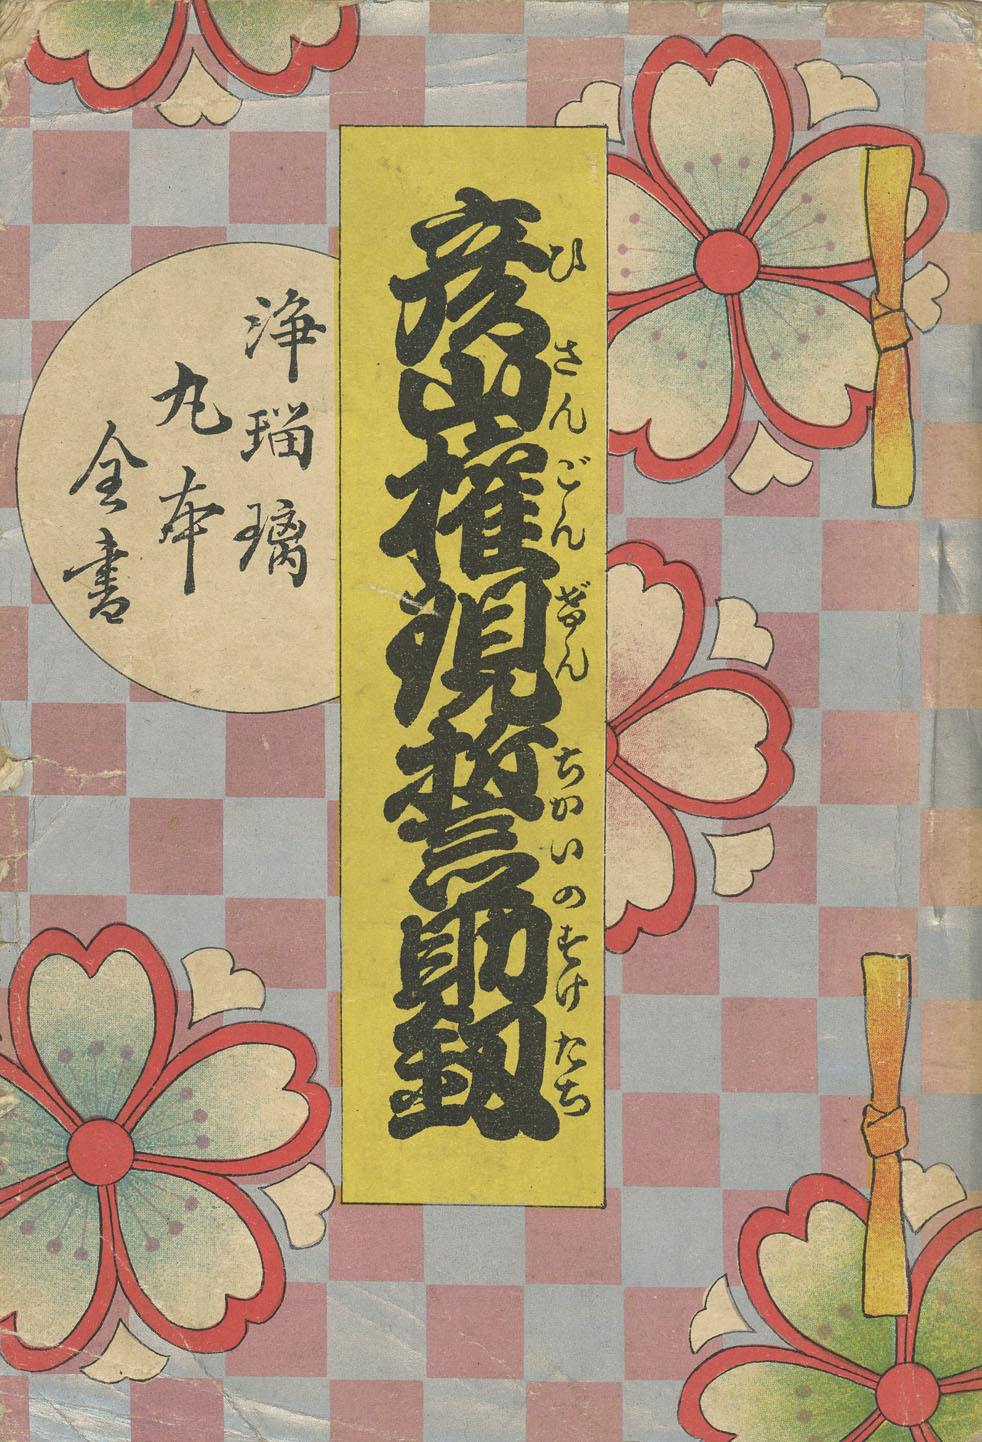 彦山権現誓助釼
ひさんごんげんちかいのすけたち
浄瑠璃
丸本
全書